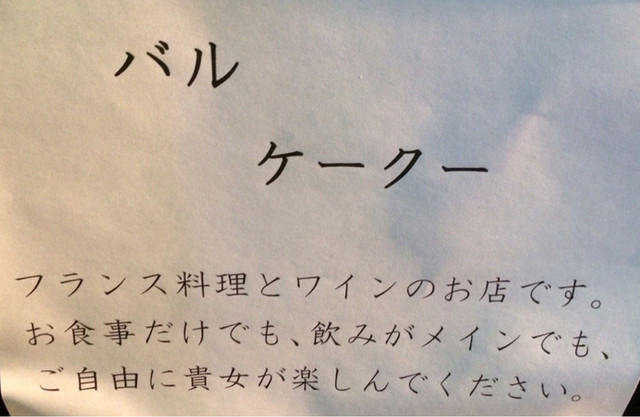 バル
ケークー
フランス料理とワインのお店です。
お食事だけでも、飲みがメインでも、
ご自由に貴女が楽しんでください。